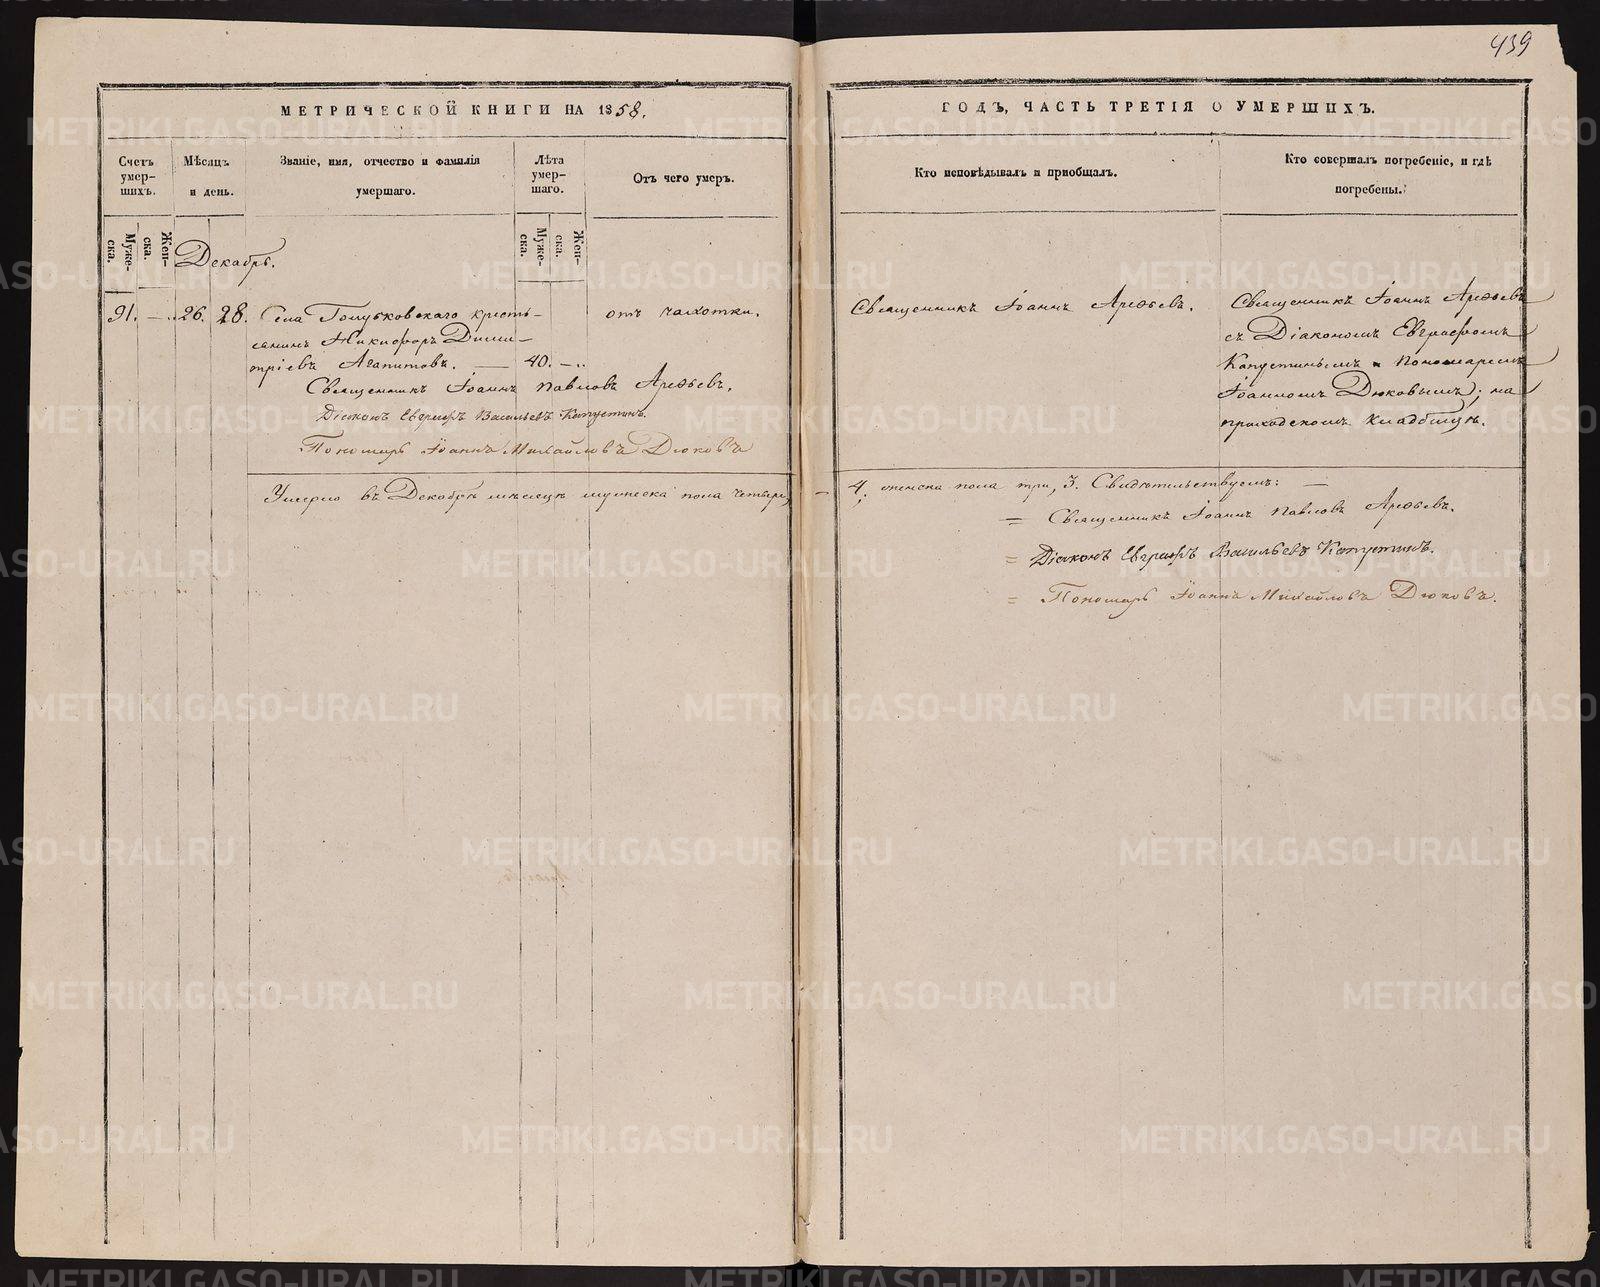 439
МЕТРИЧЕСКОЙ КНИГИ НА 1858.
ГОДЪ, ЧАСТЬ ТРЕТІЯ О УМЕРШИХЪ.
Счетъ умер-шихъ.
Мѣсяцъ и день.
Званіе, имя, отчество и фамилія умершаго.
Лѣта умер-шаго.
Отъ чего умеръ.
Кто исповѣдывалъ и пріобщалъ.
Кто совершалъ погребеніе, и гдѣ погребены.
Муже-ска.
Жен-ска.
Муже-ска.
Жен-ска.
Декабрь.
91. 26. 28. Села Голубковскаго кресть-
янинъ Никифоръ Дими-
тріевъ Агапитовъ. — 40.
отъ чахотки.
Священникъ Іоаннъ Арефьевъ.
Священникъ Іоаннъ Арефьевъ
съ Діакономъ Евграфомъ
Капустинымъ и Пономаремъ
Іоанномъ Дюковымъ; на
приходскомъ кладбищѣ.
Священникъ Іоаннъ Павловъ Арефьевъ.
Діаконъ Евграфъ Васильевъ Капустинъ.
Пономарь Іоаннъ Михайловъ Дюковъ
Умерло въ Декабрѣ мѣсяцѣ мужеска пола четыре,
4, женска пола три, 3. Свидѣтельствуемъ: —
= Священникъ Іоаннъ Павловъ Арефьевъ.
= Діаконъ Евграфъ Васильевъ Капустинъ.
= Пономарь Іоаннъ Михайловъ Дюковъ.
METRIKI.GASO-URAL.RU